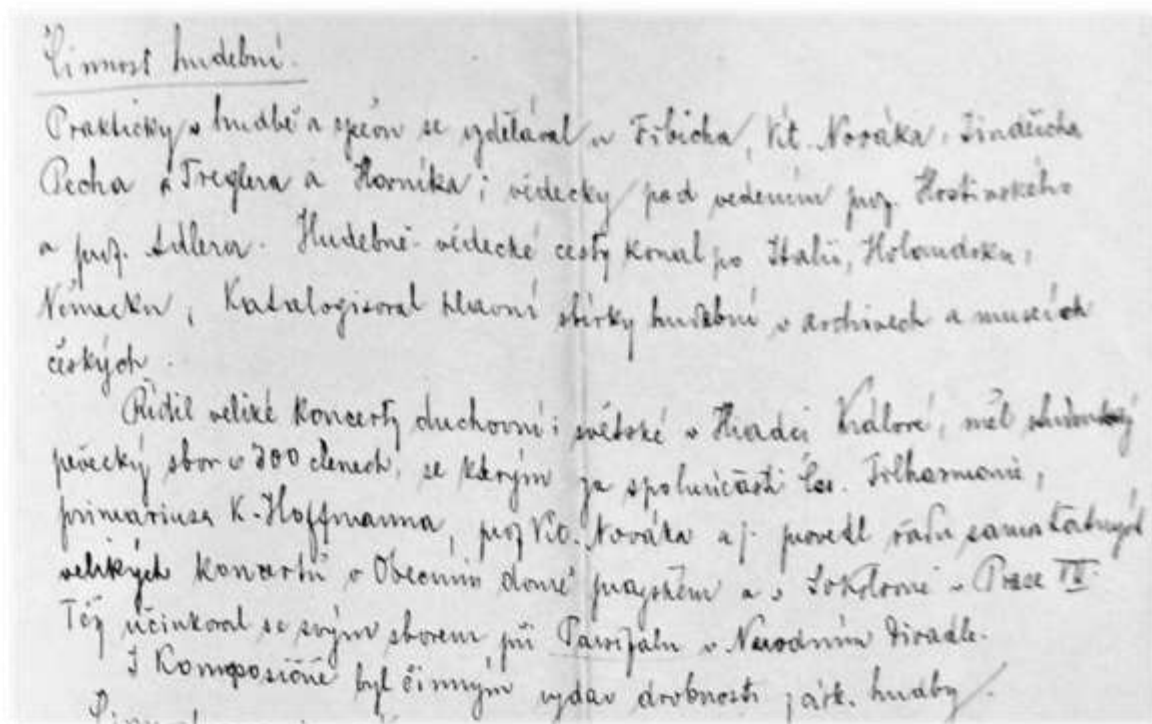 Činnost hudební.
Prakticky v hudbě a zpěvu se vzdělával u Fibicha, Vít. Nováka, Jindřicha
Pecha a Treglera a Horníka; vědecky pod vedením prof. Hostinského
a prof. Adlera. Hudebně-vědecké cesty konal po Italii, Holandsku,
Německu, Katalogisoval hlavní sbírky hudební v archivech a museích
českých.
Řídil veliké koncerty duchovní i světské v Hradci Králové, měl studentský
pěvecký sbor o 300 členech, se kterým za spoluúčasti Čes. Filharmonie,
primariusa K. Hoffmanna, prof. Vít. Nováka a j. provedl řadu samostatných
velikých koncertů v Obecním domě pražském a v Sokolovně v Praze
Též účinkoval se svým sborem při Parsifalu v Národním divadle.
I Komposičně byl činným vydav drobnosti hudby.